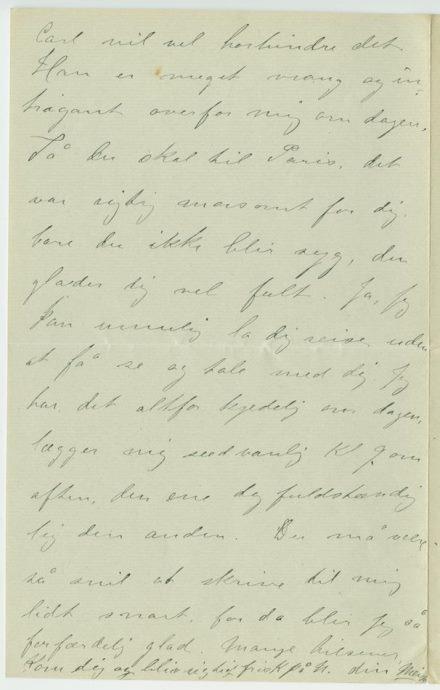 Carl vil vel forhindre det.
Han er meget vrang og in-
trigant overfor mig om dagen.
Så Du skal til Paris, det
var rigtig morsomt for dig.
bare du ikke blir syg, du
glæder dig vel fælt. Ja, jeg
kan umulig la dig reise uden
at få se og tale med dig. Jeg
har det altfor kjedelig om dagen,
lægger mig sædvanlig Kl 9 om
aften, den ene dag fuldstændig
lig den anden. Du må være
så snil at skrive til mig
lidt snart, for da blir jeg så
forfærdelig glad. Mange hilsener
Kom dig og bliv rigtig frisk på N. din